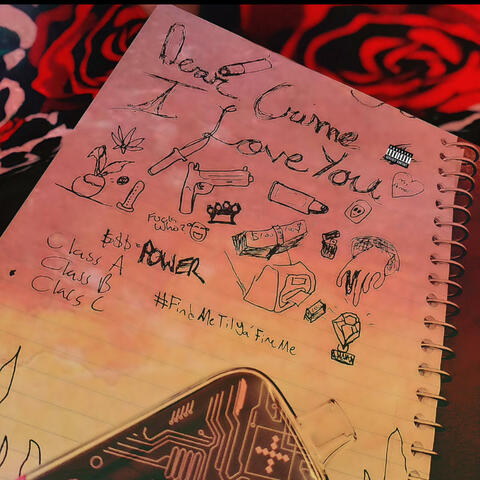 Dear Crime
I Love You
Fuck
Who?
$$$=
POWER
Class A
Class B
Class C
#FindMeTilYaFineMe